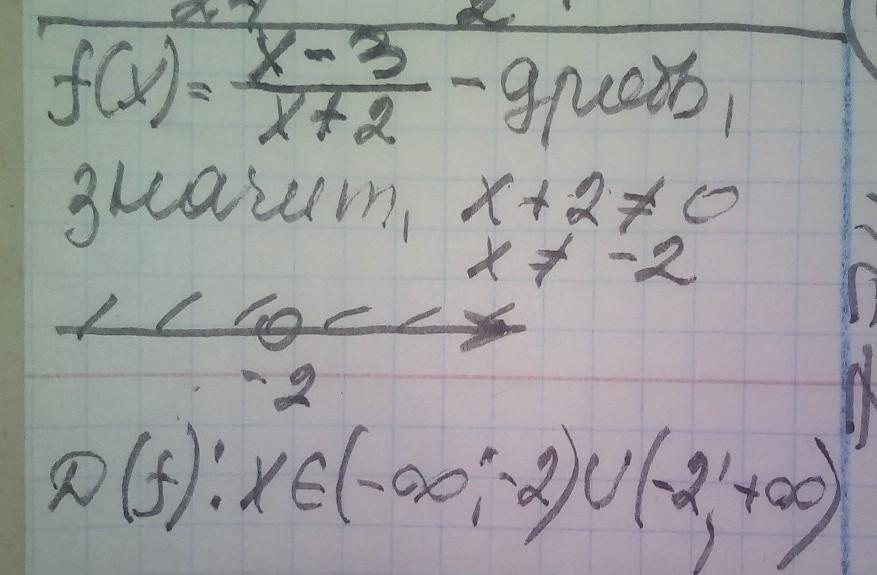 f(x) = x - 3 / x + 2 - дробь,
значит, x + 2 ≠ 0
x ≠ -2
-2
D(f): x ∈ (-∞; -2) ∪ (-2; +∞)